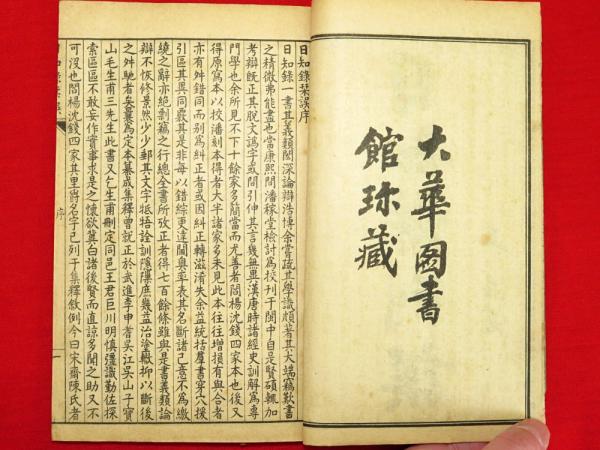 大華圖書
館珎藏
日知錄栞誤序
日知錄一書其義類閎深論辯浩博余嘗疏其學識頗著其大端竊歎書
之精微弗能盡也當康熙閒潘稼堂檢討爲校刊于閩中自是賢碩輒加
考辯旣正其脫文譌字或閒引伸其言幾無異漢唐時諸經史訓解爲專
門學也余所見不下十餘家多簡當而尤善者閻楊沈錢四家本也後又
得原寫本以校潘刻本得者大半諸家多未見此本往往增損有與合者
亦有舛錯同而别爲糾正者或因糾正轉滋淆失余益統括羣書穿穴援
引區其異同覈其是非每以錯綜更達閫奧年表其名斷諸己意不爲繳
繞之辭亦絕剿竊之行總全書所攷正者得七百餘條雖與是書義類論
辯不恢修景然少少郵其文字牴牾詮訓隱庶幾益治塗轍抑以斷後
之舛馳者妄爲定本纂成集釋曾就正於武進李申耆吳江吳山子寶
山毛生甫三先生此書又乞生甫刪定同邑王君巨川明慎彊識勤佐探
索區區不敢妄作實事求是之懷欲冀白諸後賢而直諒多聞之助又不
可沒也閻楊沈錢四家其里爵名字已列于集釋敘例今曰宋齋陳氏者
序
一